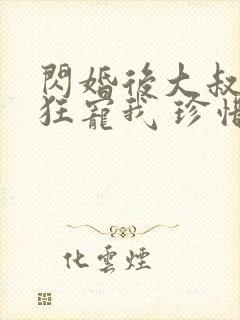 閃婚後大叔
狂寵我 珍惜
化雲煙